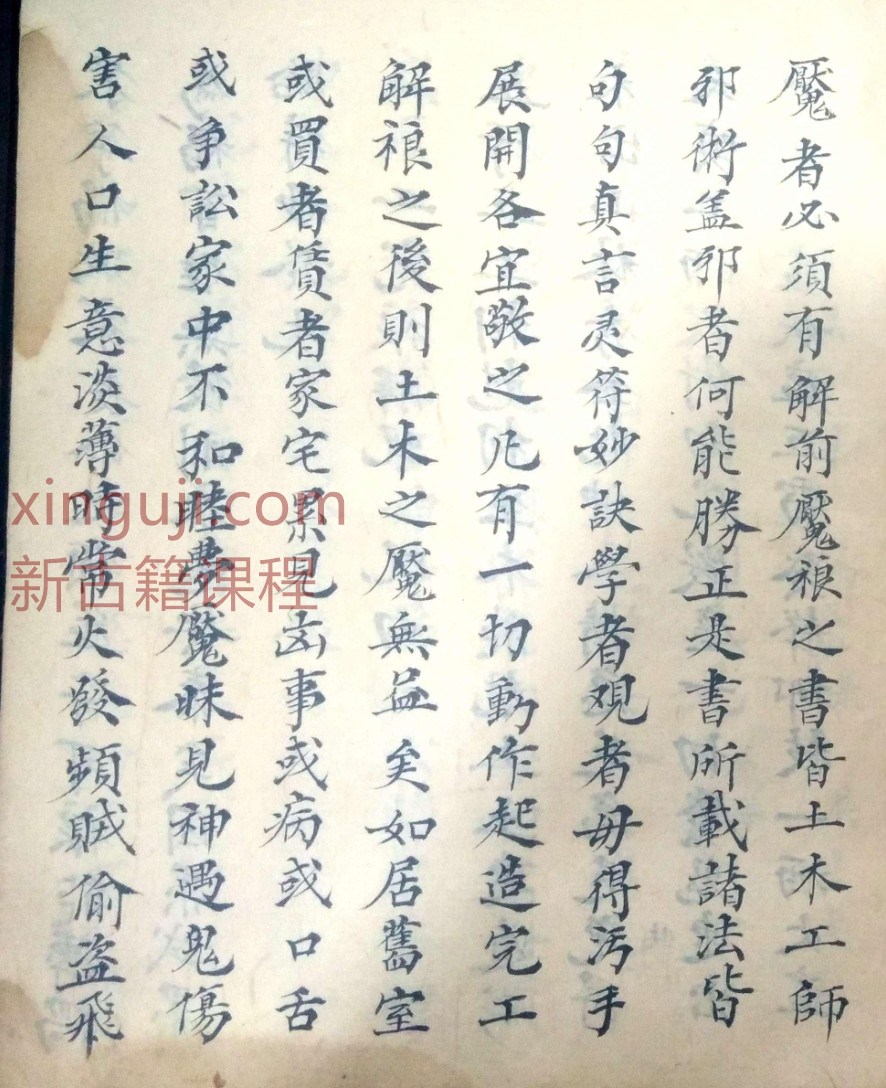 魘者必須有解前魘禳之書皆土木工師
邪術盖邪者何能勝正是書所載諸法皆
句句真言灵符妙訣學者观者毋得污手
展開各宜敬之凢有一切動作起造完工
解禳之後則土木之魘無益矣如居舊室
或買者賃者家宅累見凶事或病或口舌
或争訟家中不和睦夢魘昧見神遇鬼傷
害人口生意淡薄時常火發頻賊偷盗飛
xinguji.com
新古籍课程